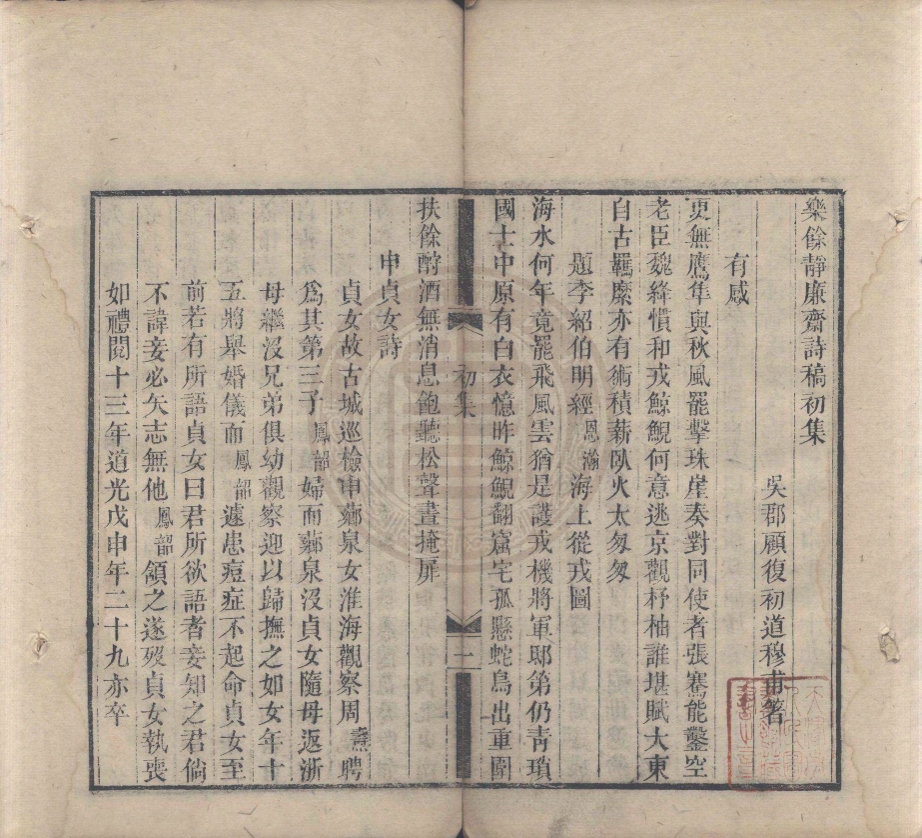 樂餘靜廉齋詩稿初集
吳郡顧復初道穆甫著
有感
更無鷹隼與秋風罷擊珠崖奏對同使者張騫能鑿空
老臣魏絳慣和戎鯨鯢何意逃京觀杼柚誰堪賦大東
自古羈縻亦有術積薪臥火太匆匆
題李紹伯明經恩瀚海上從戎圖
海水何年竟罷飛風雲猶是護戎機將軍邸第仍青瑣
國士中原有白衣憶昨鯨鯢翻窟宅孤懸蛇鳥出重圍
初集
一
扶餘酹酒無消息飽聽松聲晝掩扉
申貞女詩
貞女故古城巡檢申薌泉女淮海觀察周燾聘
爲其第三子鳳韶婦而薌泉沒貞女隨母返浙
母繼沒兄弟俱幼觀察迎以歸撫之如女年十
五將舉婚儀而鳳韶遽患痘症不起命貞女至
前若有所語貞女曰君所欲語者妾知之君倘
不諱妾必矢志無他鳳韶領之遂歿貞女執喪
如禮閱十三年道光戊申年二十九亦卒